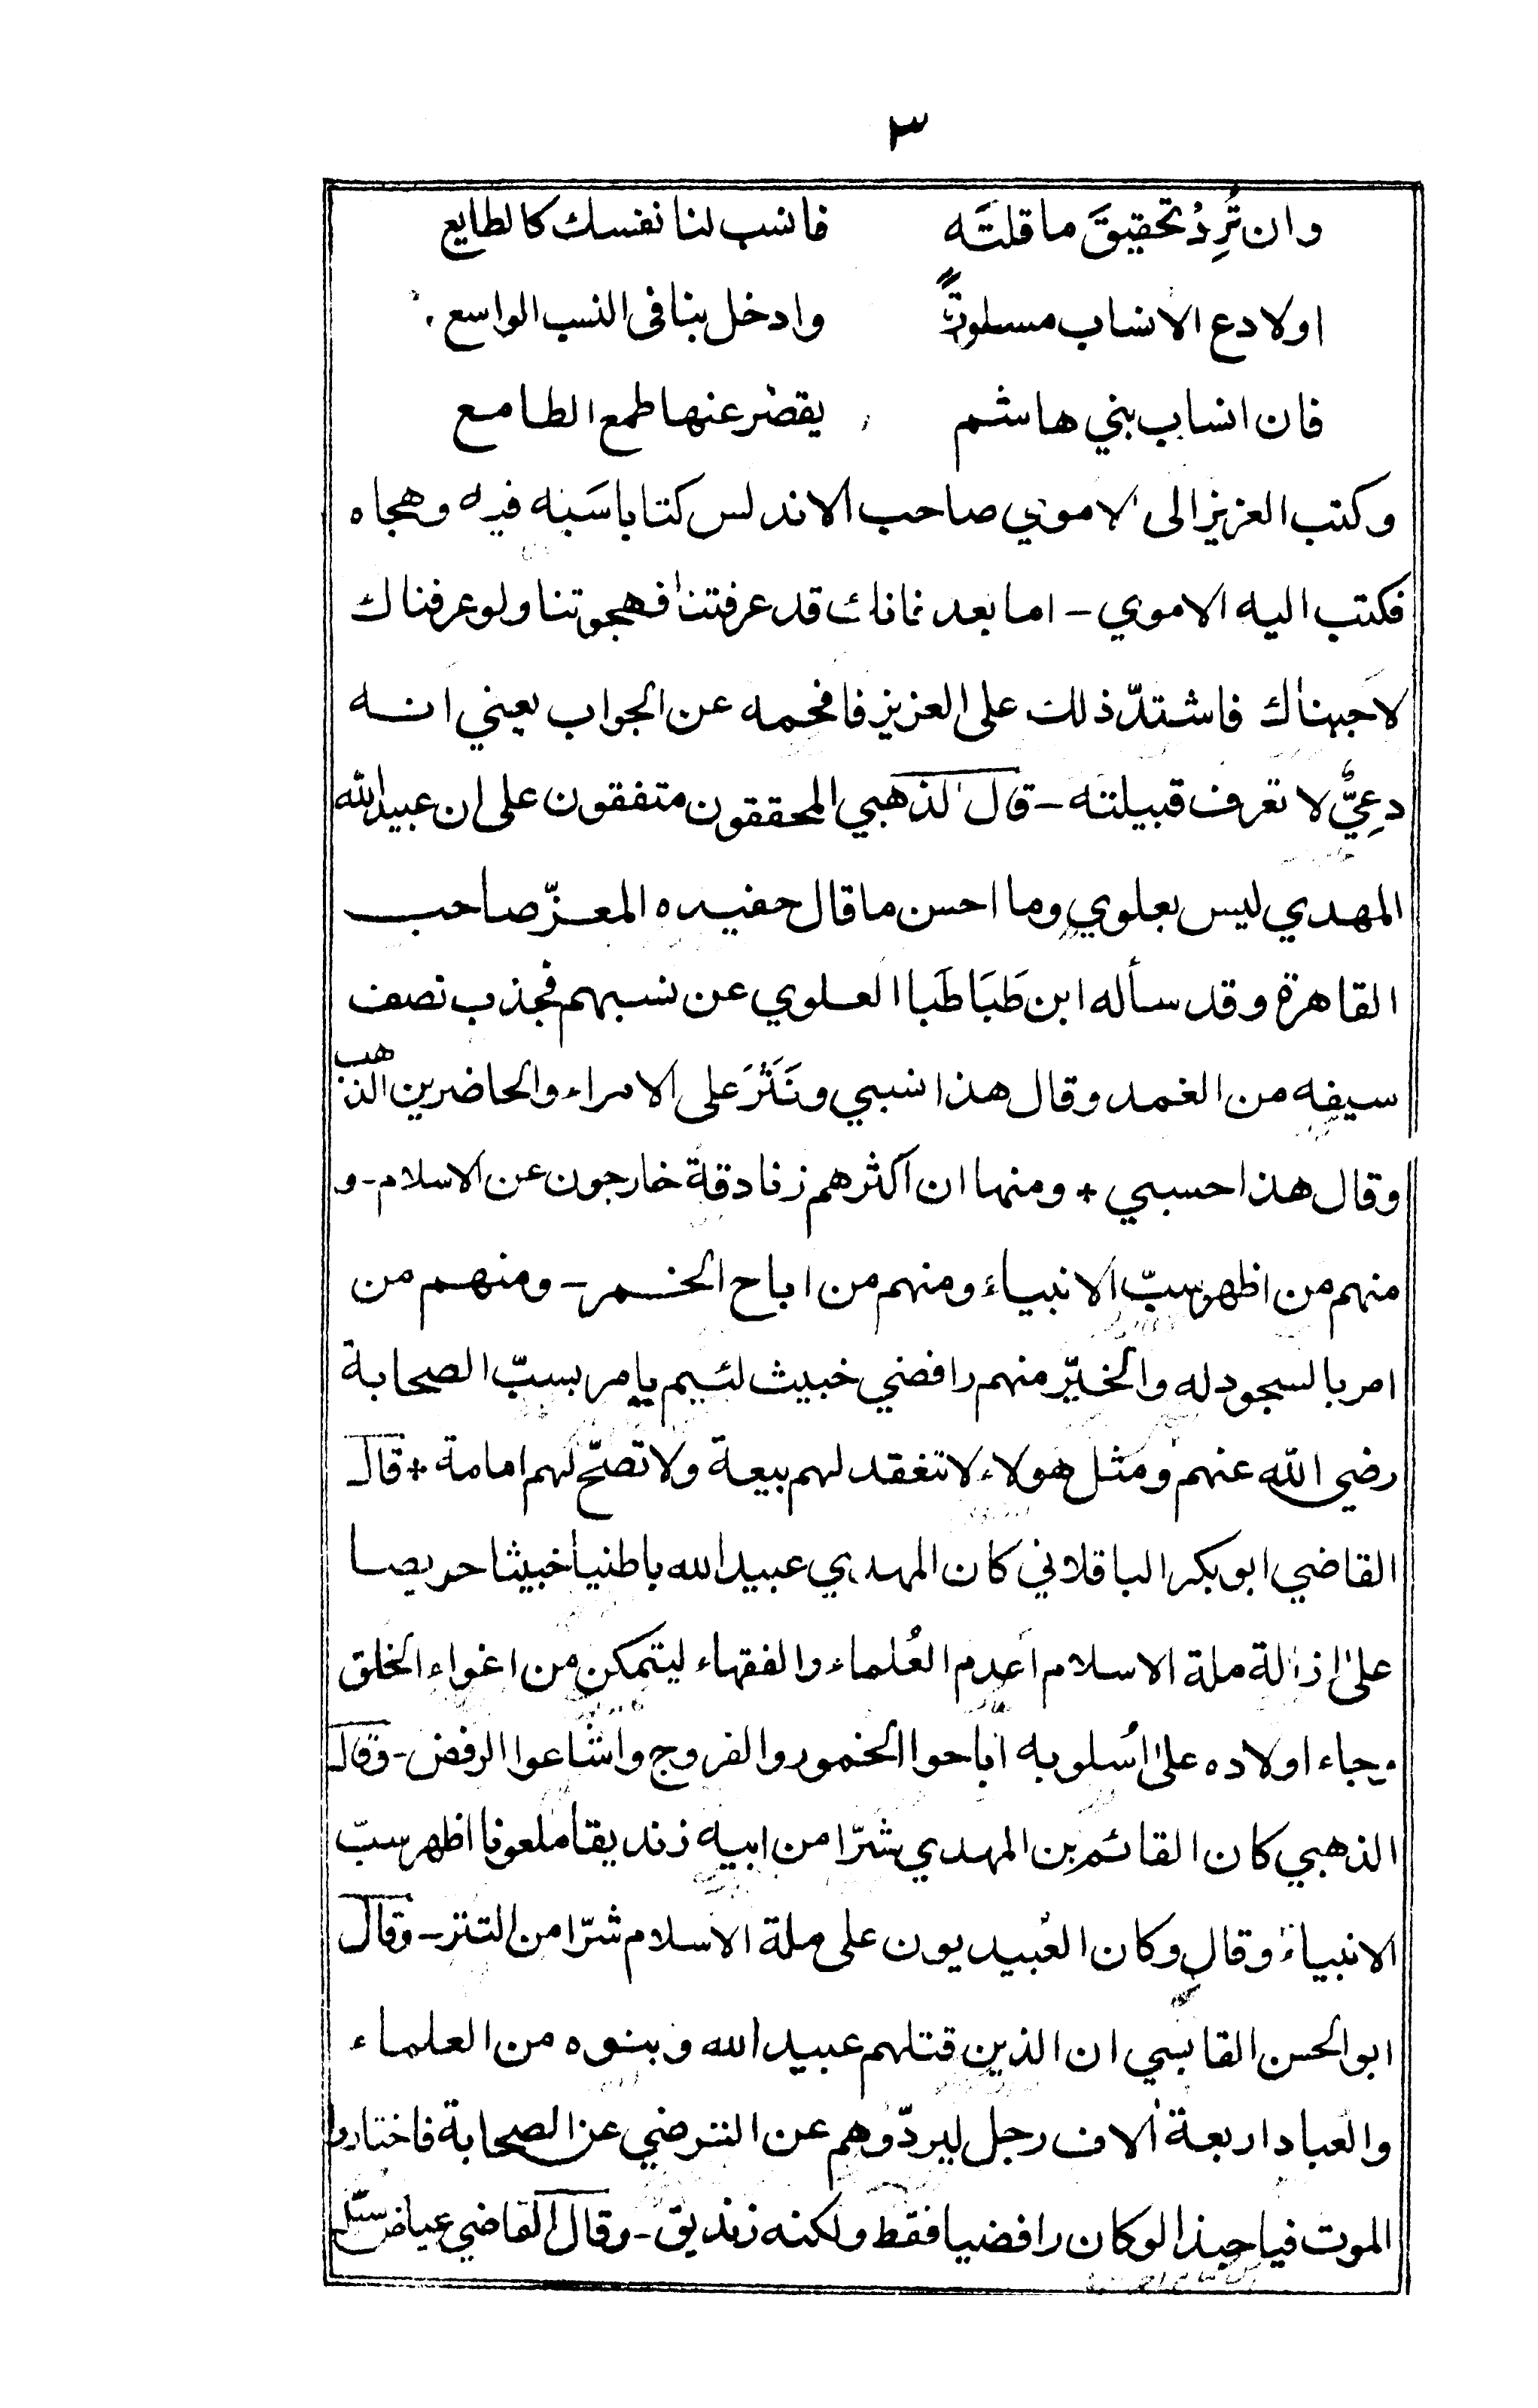 ٣
وان تُرِدْ تحقيقَ ما قلتَه فانسب لنا نفسك كالطايع
اولا دع الانساب مستورة وادخل بنا فى النسب الواسع
فان انساب بني هاشم يقصر عنها طمع الطامع
وكتب العزيز الى الاموي صاحب الاندلس كتابا سَبَّه فيه وهجاه
فكتب اليه الاموي - اما بعد فانك قد عرفتنا فهجوتنا ولو عرفناك
لاجبناك فاشتدّ ذلك على العزيز فافحمه عن الجواب يعني انه
دعِيٌّ لا تعرف قبيلته - قال الذهبي المحققون متفقون على ان عبيد الله
المهدي ليس بعلوي وما احسن ما قال حفيده المعزّ صاحب
القاهرة وقد سأله ابن طَبَاطَبا العلوي عن نسبهم فجذب نصف
سيفه من الغمد وقال هذا نسبي ونَثَرَ على الامراء والحاضرين الذهب
وقال هذا حسبي * ومنها ان اكثرهم زنادقة خارجون عن الاسلام - و
منهم من اظهر سبّ الانبياء ومنهم من اباح الخمر - ومنهم من
امر بالسجود له والخيّر منهم رافضي خبيث لئيم يامر بسبّ الصحابة
رضي الله عنهم ومثل هولاء لا تنعقد لهم بيعة ولا تصحّ لهم امامة * قال
القاضي ابو بكر الباقلاني كان المهدي عبيد الله باطنيا خبيثا حريصا
على ازالة ملة الاسلام اعدم العُلماء والفقهاء ليتمكن من اغواء الخلق
وجاء اولاده على اُسلوبه اباحوا الخمور والفروج واشاعوا الرفض - وقال
الذهبي كان القائم بن المهدي شرّا من ابيه زنديقا ملعونا اظهر سبّ
الانبياء وقال وكان العُبيديون على ملة الاسلام شرّا من التتر - وقال
ابو الحسن القابسي ان الذين قتلهم عبيد الله وبنوه من العلماء
والعباد اربعة الاف رجل ليردّوهم عن الترضي عن الصحابة فاختاروا
الموت فيا حبذا لو كان رافضيا فقط ولكنه زنديق - وقال القاضي عياض سئل